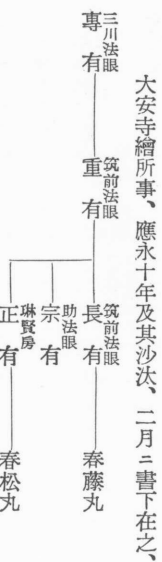 大安寺繪所事、應永十年及其沙汰、二月ニ書下在之、
三川法眼
專有
筑前法眼
重有
筑前法眼
長有
春藤丸
助法眼
宗有
琳賢房
正有
春松丸